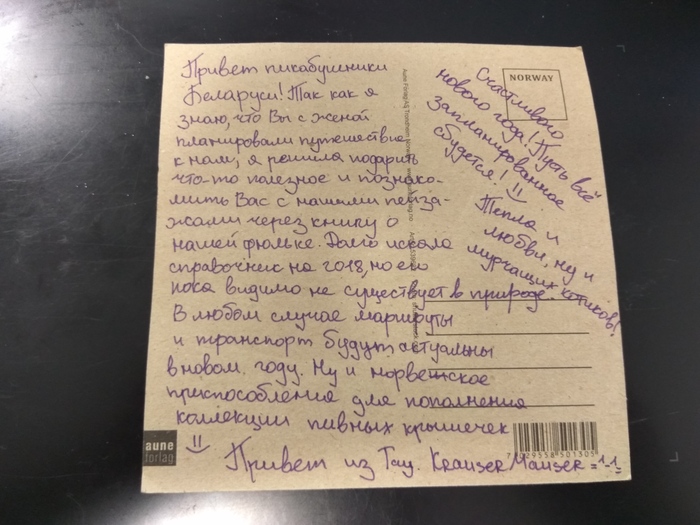 Привет пикабушники
Беларуси! Так как я
знаю, что Вы с женой
планировали путешествие
к нам, я решила подарить
что-то полезное и познако-
мить Вас с нашими пейза-
жами через книгу о
нашей фюльке. Долго искала
справочник на 2018, но его
пока видимо не существует в природе.
В любом случае маршруты
и транспорт будут актуальны
в новом году. Ну и норвежское
приспособление для пополнения
коллекции пивных крышечек
Привет из Тау. KrauserMauser
NORWAY
Счастливого
нового года! Пусть всё
запланированное
сбудется!
Тепла и
любви, ну и
мурчащих котиков!
aune
forlag